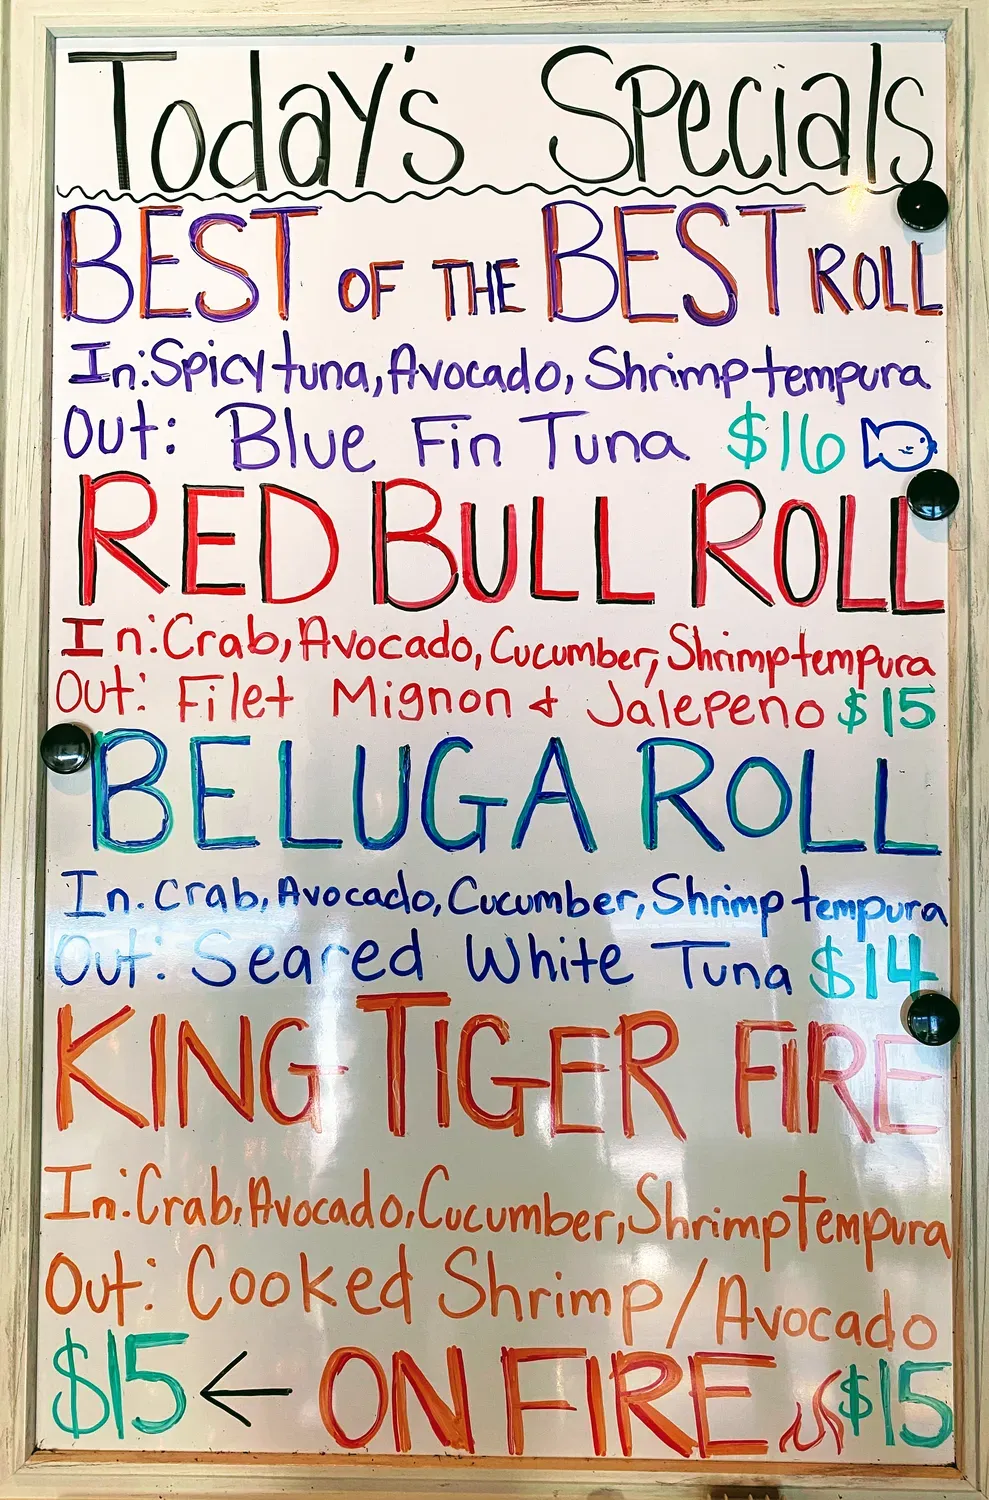 Today's Specials
BEST OF THE BEST ROLL
In: Spicy tuna, Avocado, Shrimp tempura
Out: Blue Fin Tuna $16
RED BULL ROLL
In: Crab, Avocado, Cucumber, Shrimp tempura
Out: Filet Mignon & Jalepeno $15
BELUGA ROLL
In. Crab, Avocado, Cucumber, Shrimp tempura
Out: Seared White Tuna $14
KING TIGER FIRE
In: Crab, Avocado, Cucumber, Shrimp tempura
Out: Cooked Shrimp/Avocado
$15 ← ON FIRE $15